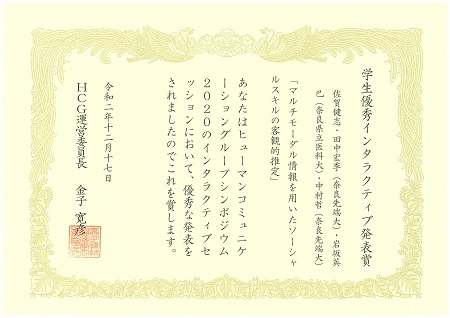 学生優秀インタラクティブ発表賞
佐賀健志・田中宏季（奈良先端大）・岩坂英
巳（奈良県立医科大）・中村哲（奈良先端大）
「マルチモーダル情報を用いたソーシャ
ルスキルの客観的推定」
あなたはヒューマンコミュニケ
ーショングループシンポジウム
２０２０のインタラクティブセ
ッションにおいて、優秀な発表を
されましたのでこれを賞します。
令和二年十二月十七日
ＨＣＧ運営委員長　金子 寛彦